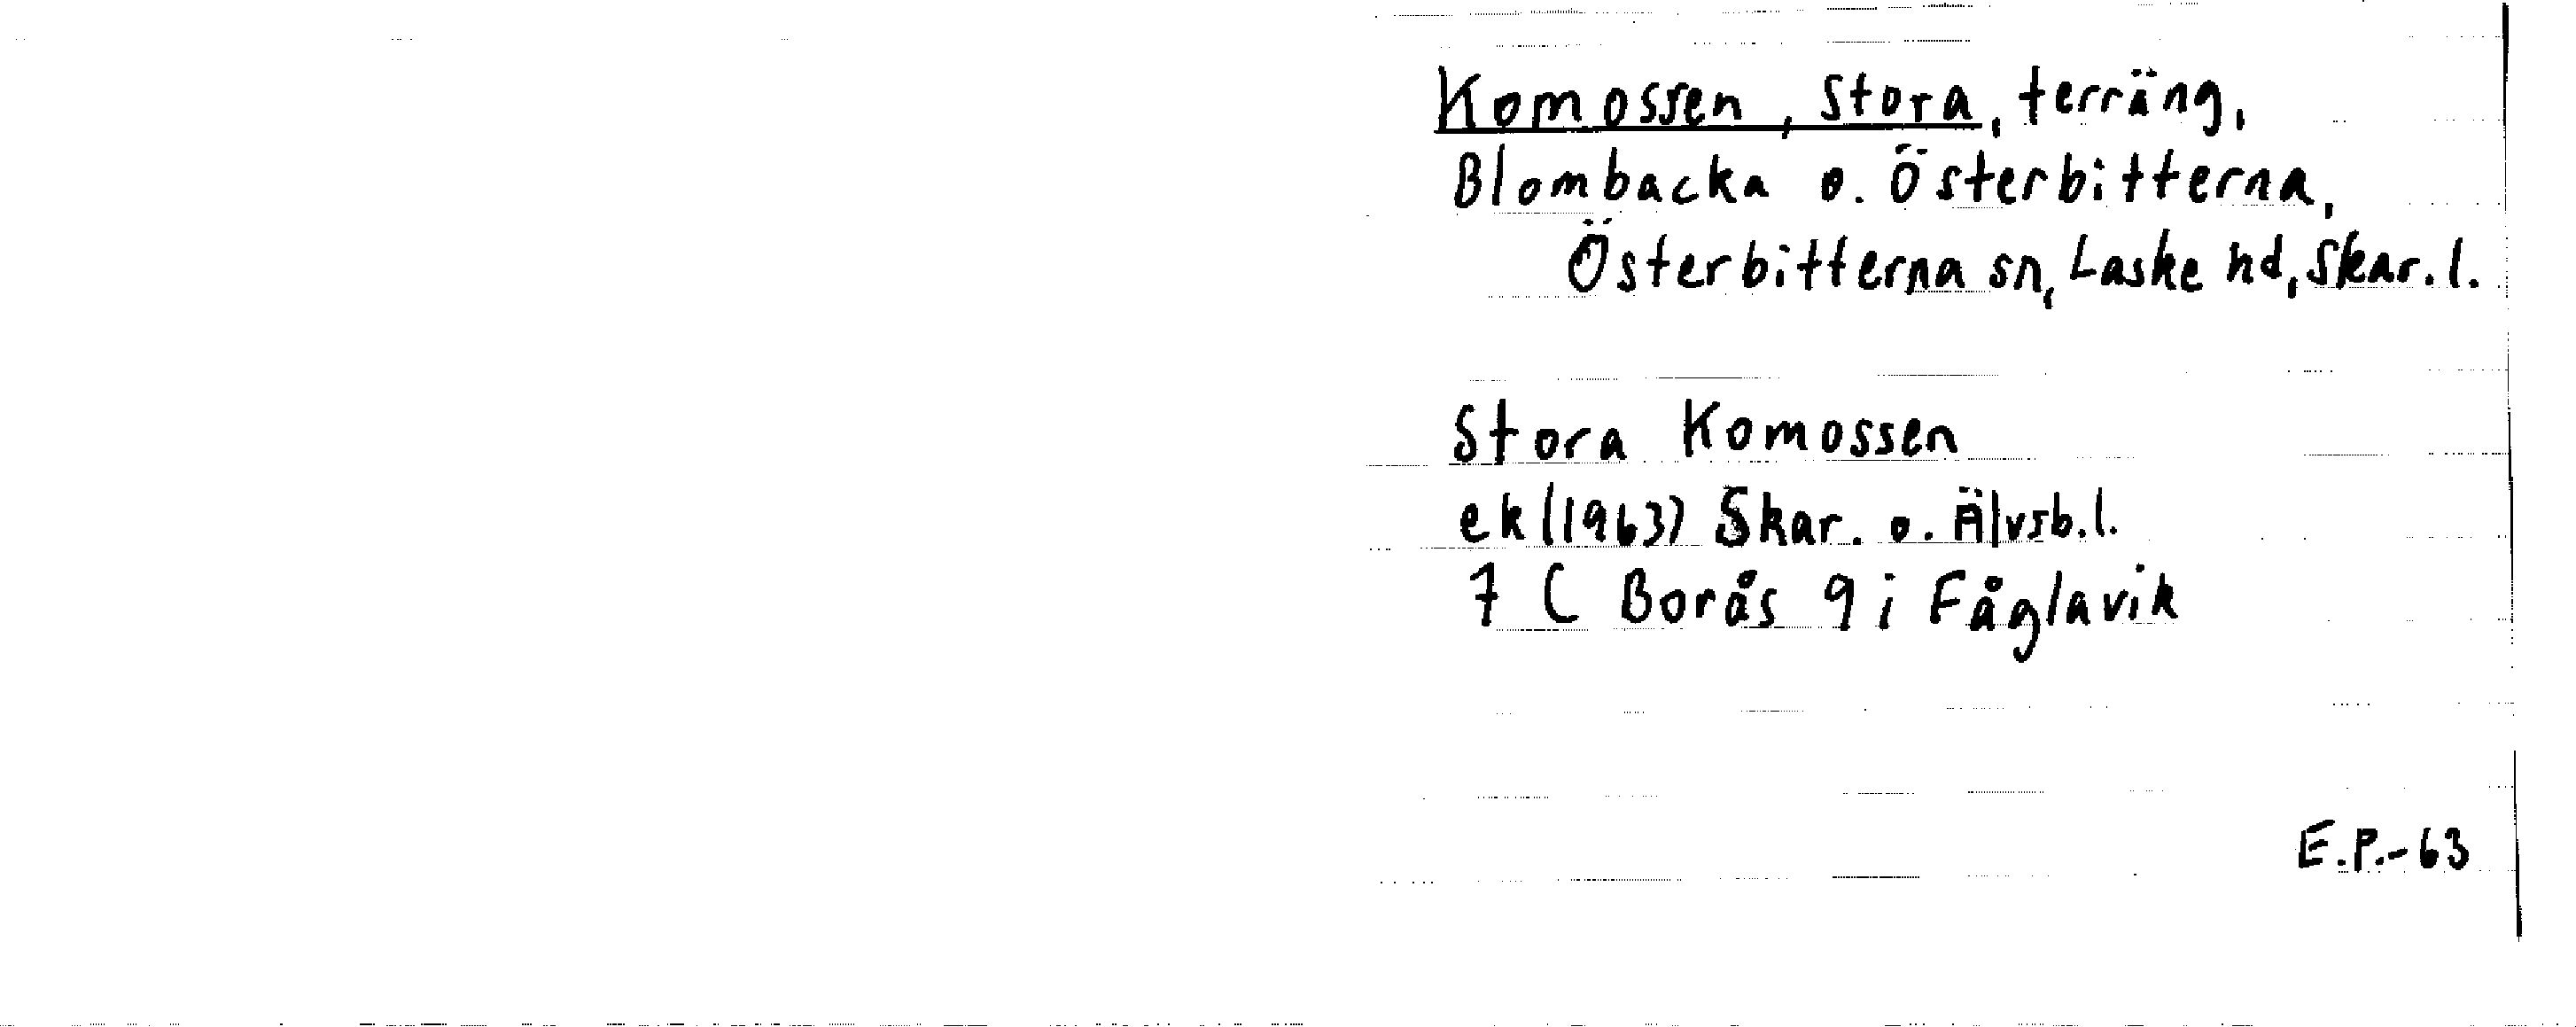 Komossen, Stora, terräng,
Blombacka o. Österbitterna,
Österbitterna sn, Laske hd, Skar. l.
Stora Komossen
ek (1963) Skar. o. Älvsb. l.
7 C Borås 9 i Fåglavik
E.P.-63